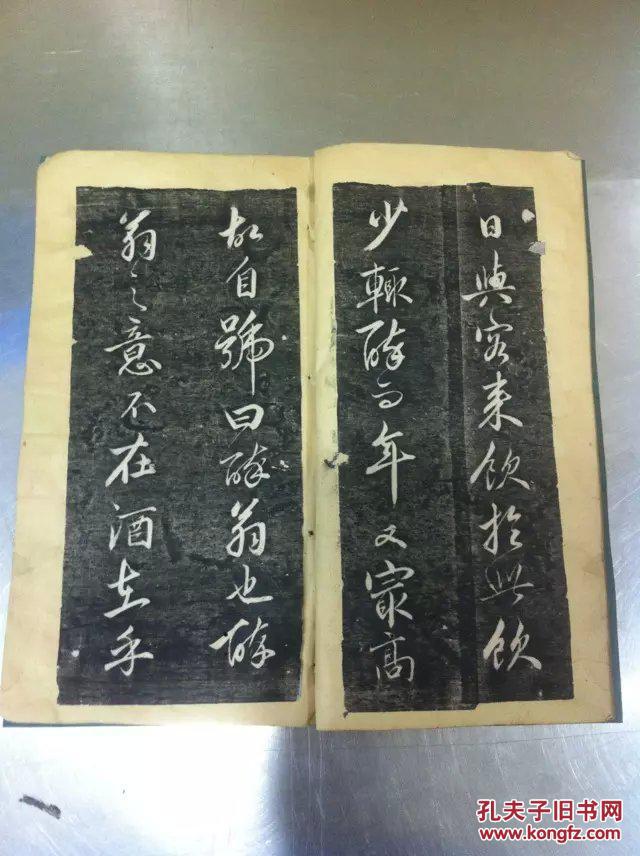 日與客來飲於此飲
少輒醉而年又㝡高
故自號曰醉翁也醉
翁之意不在酒在乎
孔夫子旧书网
www.kongfz.com